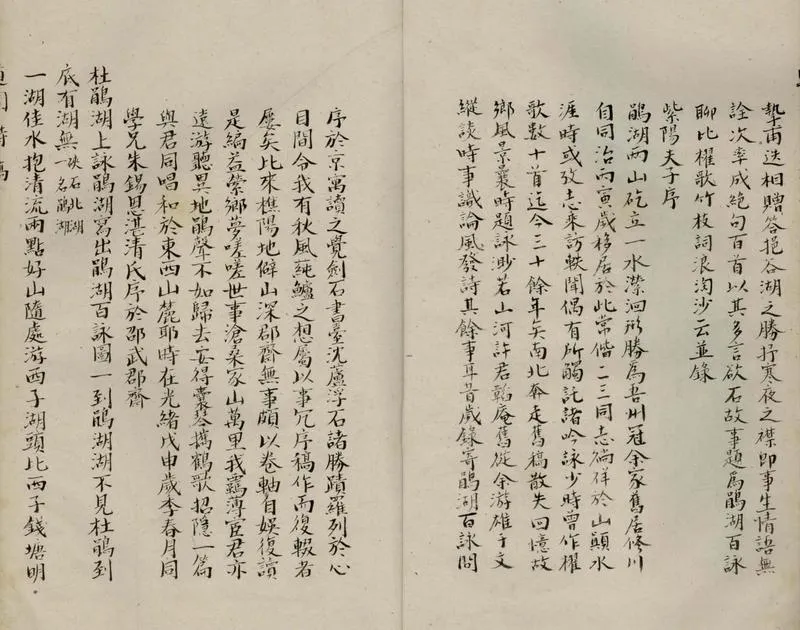 摯甫迭相贈答挹谷湖之勝抒寒夜之襟即事生情語無
詮次率成絕句百首以其多言欲石故事題為鵑湖百詠
聊比櫂歌竹枝詞浪淘沙云並錄
紫陽夫子序
鵑湖兩山矻立一水濴洄形勝為吾州冠余家舊居修川
自同治丙寅歲移居於此常偕二三同志徜徉於山巔水
涯時或攷志來訪軼聞偶有所觸託諸吟詠少時曾作櫂
歌數十首迄今三十餘年矣南北奔走舊稿散失回憶故
鄉風景曩時題詠渺若山河許君輪庵舊從余游雄于文
縱談時事識論風發詩其餘事耳昔歲錄寄鵑湖百詠問
序於京寓讀之覺劍石書臺沈廬浮石諸勝蹟羅列於心
目間令我有秋風蒓鱸之想屬以事冗序稿作而復輟者
屢矣比來樵陽地僻山深郡齋無事頗以卷軸自娛復讀
是編益縈鄉夢嗟嗟世事滄桑家山萬里我羈薄宦君亦
遠游聽異地鵑聲不如歸去安得囊琴攜鶴歌招隱一篇
與君同唱和於東西山麓耶時在光緒戊申歲季春月同
學兄朱錫恩湛清氏序於邵武郡齋
杜鵑湖上詠鵑湖寫出鵑湖百詠圖一到鵑湖湖不見杜鵑到
底有湖無一名鵑湖
一湖佳水抱清流兩點好山隨處游西子湖頭比西子錢塘明